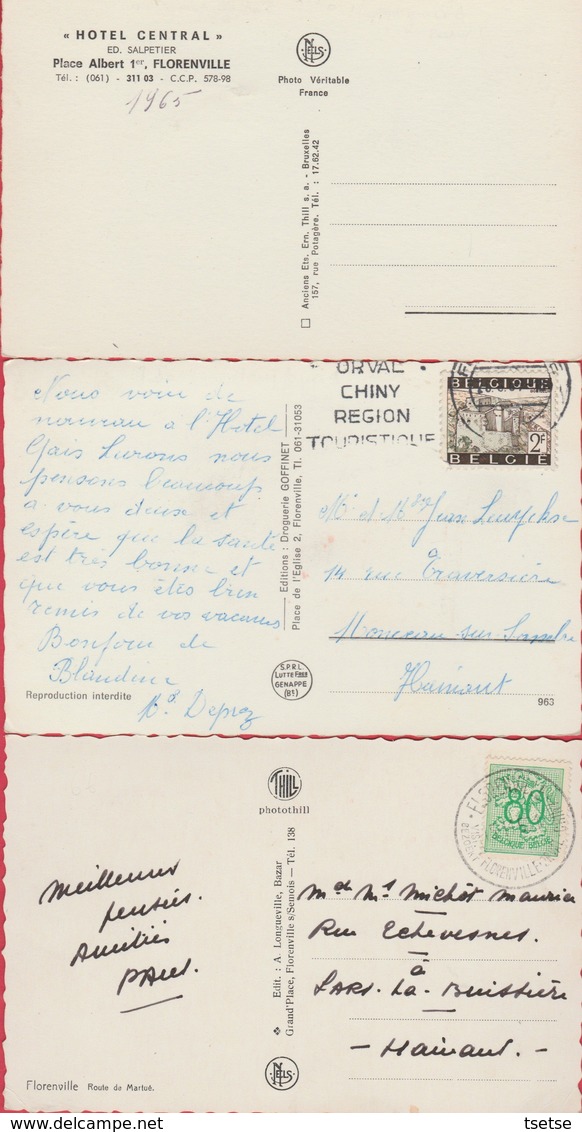 « HOTEL CENTRAL »
ED. SALPETIER
Place Albert 1er, FLORENVILLE
Tél. : (061) - 311 03 - C.C.P. 578-98
1965
NELS
Photo Véritable
France
Anciens Ets. Ern. Thill s. a. - Bruxelles
157, rue Potagère. Tél. : 17.62.42
Nous voir de
nouveau a l'Hotel
Gais Lurons nous
pensons beaucoup
a vous deux et
espère que la santé
est très bonne et
que vous êtes bien
remis de vos vacances
Bonjour de
Blandine
Md Deprez
Reproduction interdite
Editions : Droguerie GOFFINET
Place de l'Eglise 2, Florenville, Tl. 061-31053
S.P.R.L.
LUTTE
GENAPPE
(Bt)
ORVAL
CHINY
REGION
TOURISTIQUE
BELGIQUE
2F
BELGIË
Mr et Mme Jean
14 rue Traversière
Monceau sur Sambre
Hainaut
963
THILL
photothill
Meilleures
pensées.
Amitiés
PAUL.
Edit. : A. Longueville, Bazar
Grand'Place, Florenville s/Semois — Tél. 138
80
BELGIQUE-BELGIE
FLORENVILLE
Md Mr Michot Maurice
Rue Echevesnes.
à
SARS-La-Buissière
- Hainaut. -
NELS
Florenville Route de Martué.
tsetse